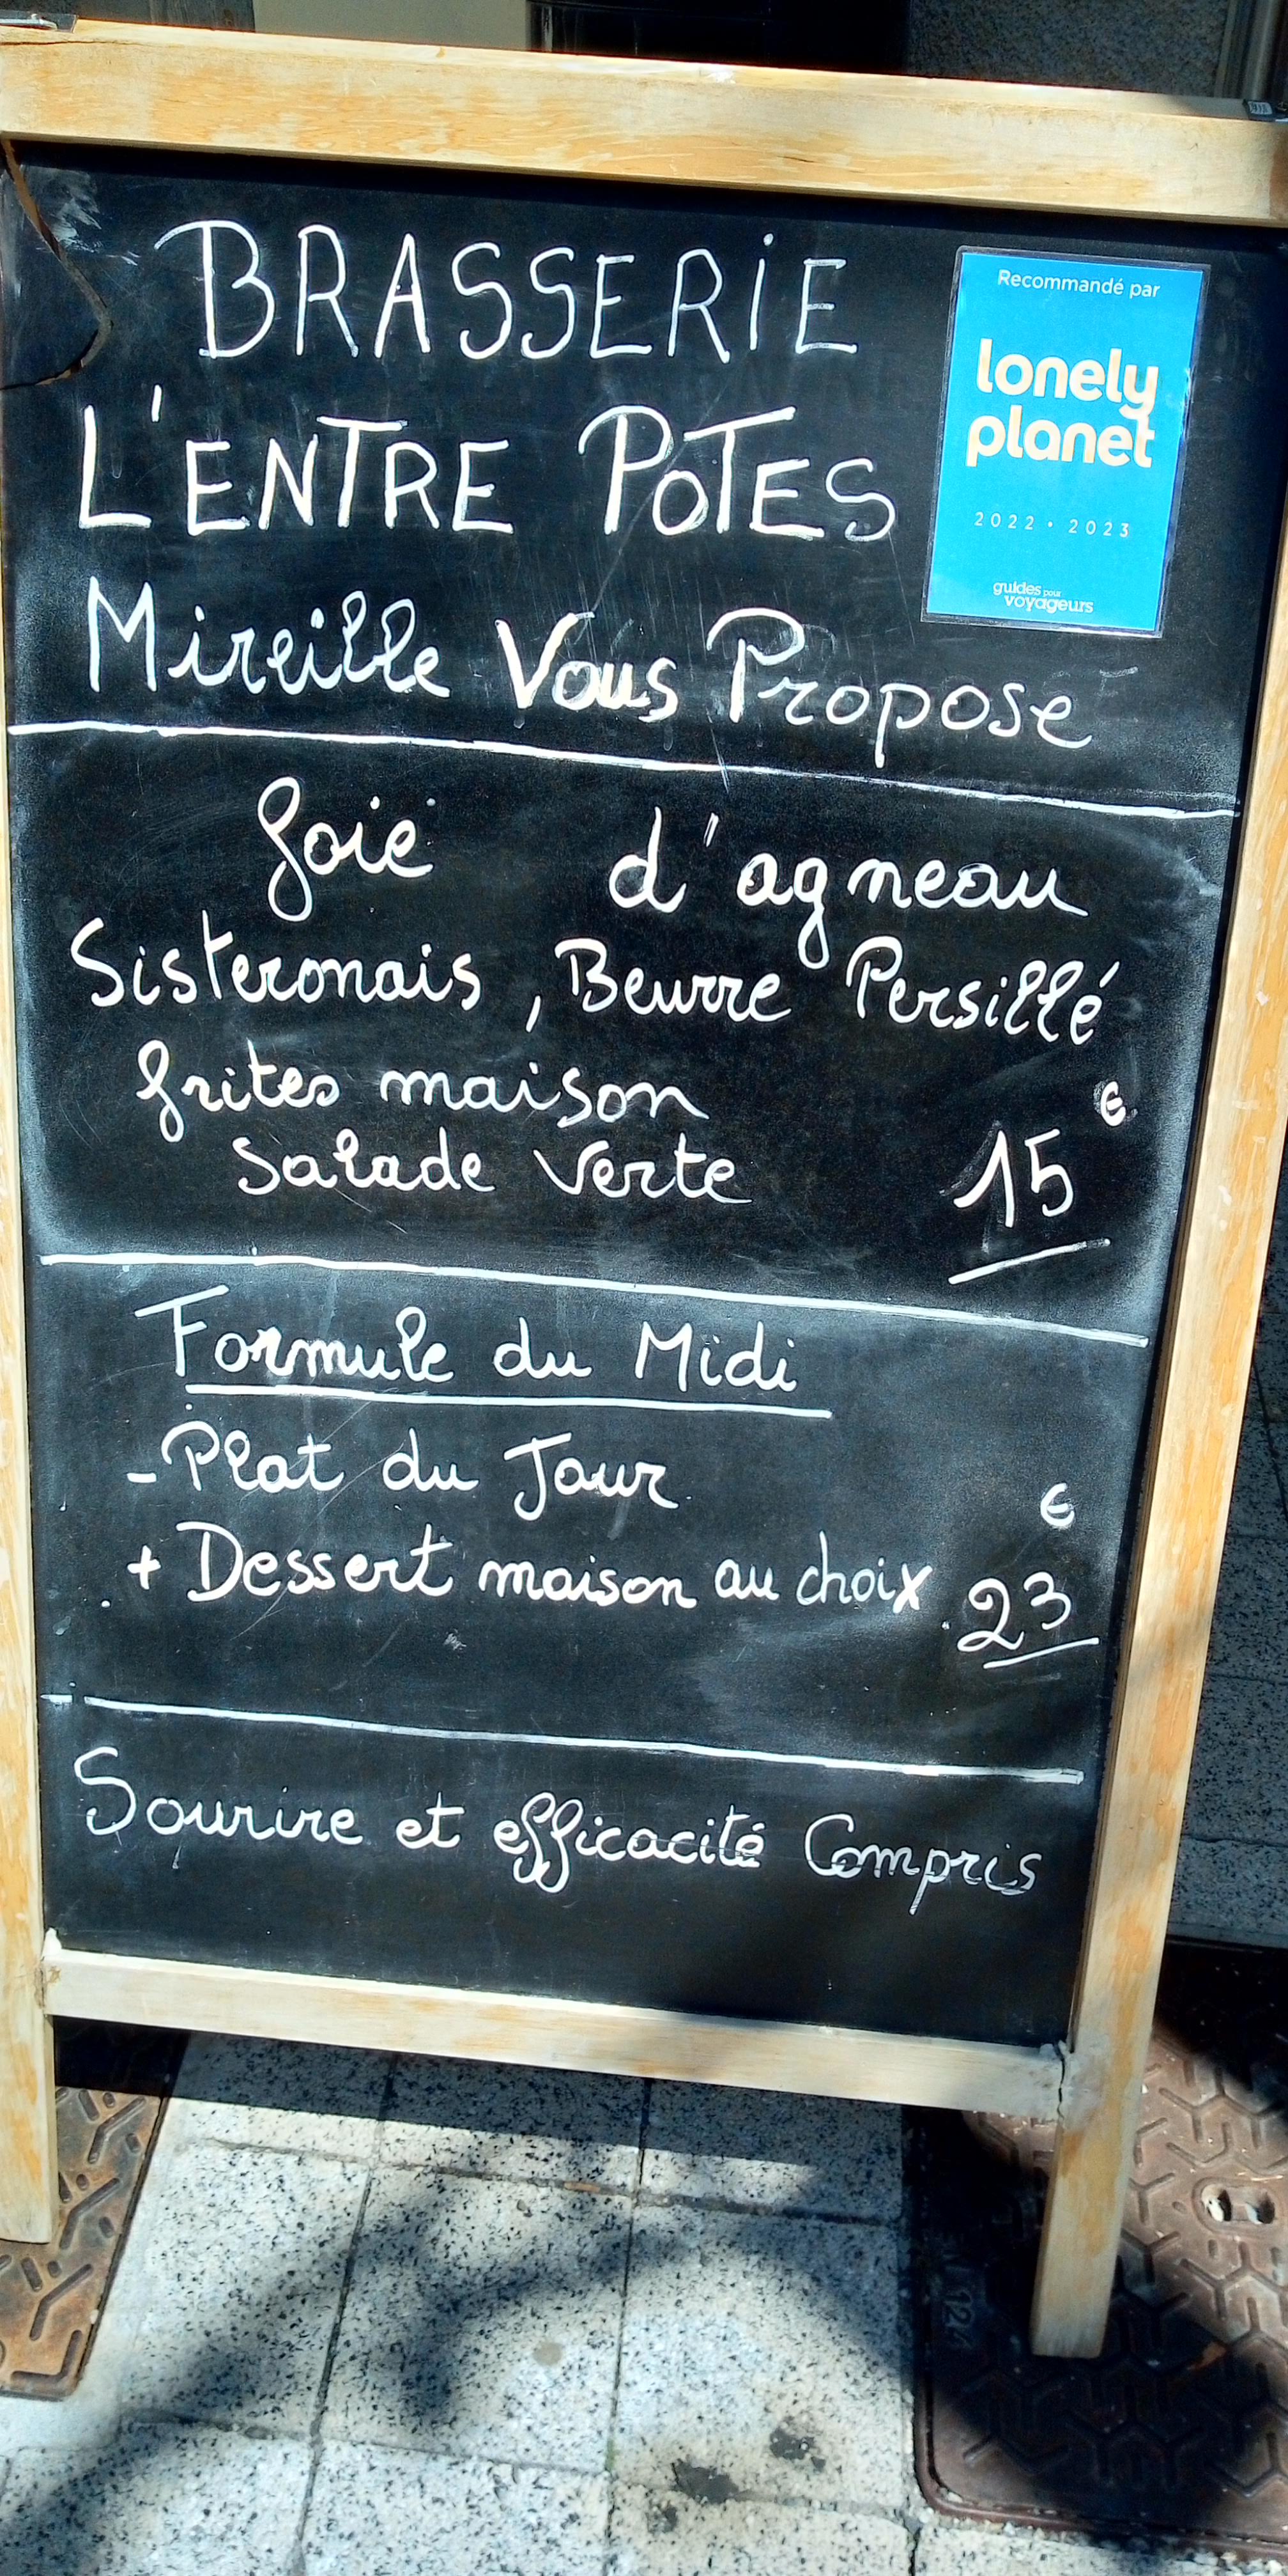 BRASSERIE
L'ENTRE POTES
Mireille Vous Propose
Recommandé par
lonely
planet
2022 • 2023
guides pour
voyageurs
foie d'agneau
Sisteronais, Beurre Persillé
frites maison
Salade Verte 15€
Formule du Midi
- Plat du Jour
+ Dessert maison au choix 23€
Sourire et efficacité Compris
124